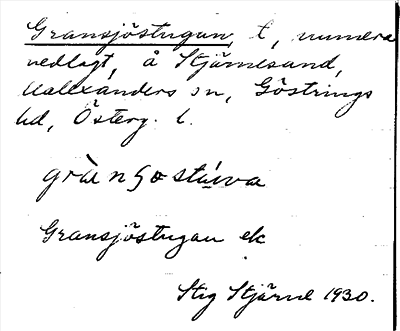 Gransjöstugan, t, numera
nedlagt, å Stjärnesand,
Kallexanders sn, Göstrings
hd, Österg. l.
gràngostúva
Gransjöstugan ek
Stig Stjärne 1930.